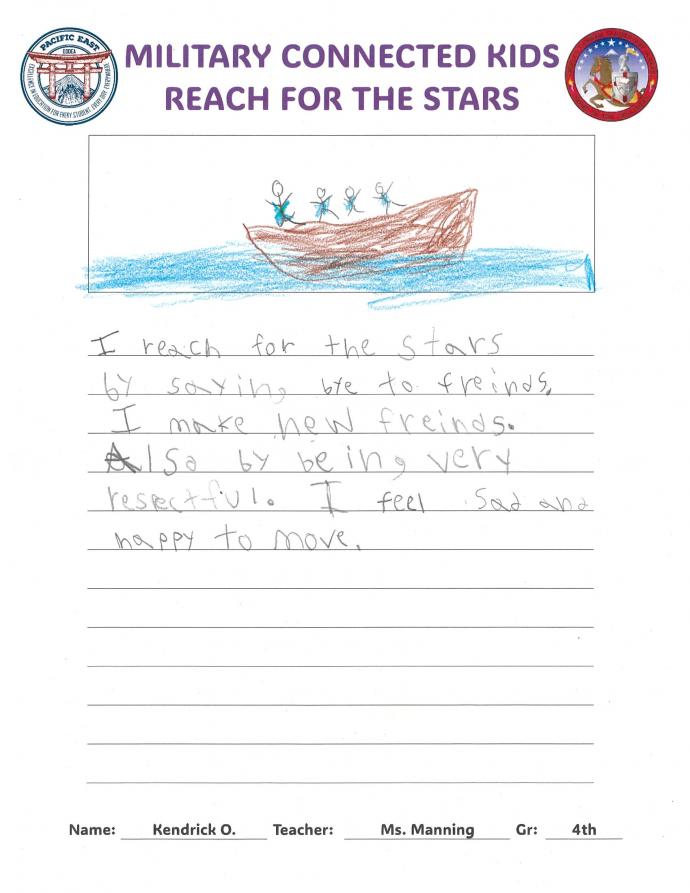 PACIFIC EAST
DODEA
EXCELLENCE IN EDUCATION FOR EVERY STUDENT, EVERY DAY, EVERYWHERE
MILITARY CONNECTED KIDS
REACH FOR THE STARS
I reach for the stars
by saying bye to freinds.
I make new freinds.
Also by being very
respectful. I feel sad and
happy to move.
Name: Kendrick O. Teacher: Ms. Manning Gr: 4th